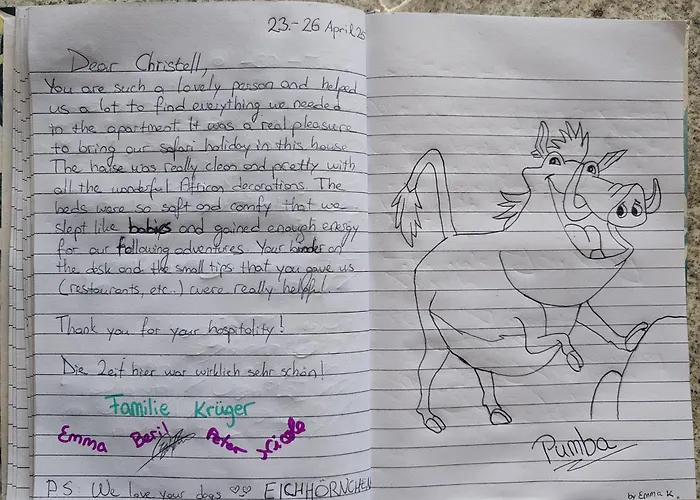 23.-26 April 25
Dear Christell,
You are such a lovely person and helped
us a lot to find everything we needed
in the apartment. It was a real pleasure
to bring our safari holiday in this house.
The house was really clean and pretty with
all the wonderful African decorations. The
beds were so soft and comfy that we
slept like babies and gained enough energy
for our following adventures. Your binder on
the desk and the small tips that you gave us
(restaurants, etc..) were really helpful.
Thank you for your hospitality!
Die Zeit hier war wirklich sehr schön!
Familie Krüger
Emma Beril Peter Nicole
PS: We love your dogs ♡♡ EICHHÖRNCHEN
Pumba
by Emma K.